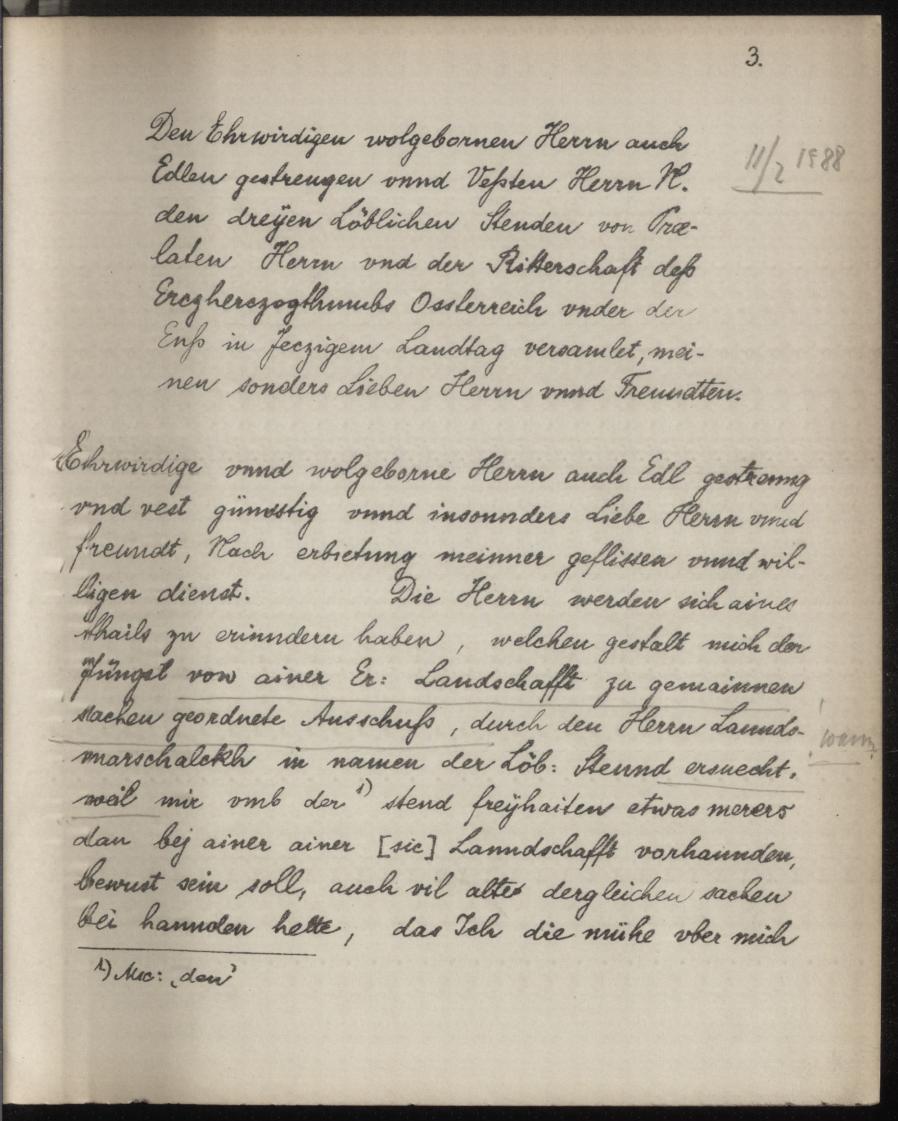 3.
Den Ehrwirdigen wolgebornen Herrn auch
11/2 1988
Edlen gestrengen vnnd Veßten Herrn N.
den dreÿen Löblichen Stenden von Præ-
laten Herrn vnd der Ritterschaft deß
Erczherczogthumbs Ossterreich vnder der
Enß in Jeczigem Landtag versamlet, mei-
nen sonders Lieben Herrn vnnd Freundten.
Ehrwirdige vnnd wolgeborne Herrn auch Edl gestreng
vnd vest günsstig vnnd insonnders Liebe Herrn vnnd
freundt, Nach erbietung meinner geflissen vnnd wil-
ligen dienst. Die Herrn werden sich aines
thails zu erinndern haben, welchen gestalt mich der
Jüngst von ainer Er: Landschafft zu gemainnen
sachen geordnete Ausschuß, durch den Herrn Lannds-
wann?
marschalckh in namen der Löb: Stennd ersuecht,
weil mir vmb der 1) stend freÿhaiten etwas merers
dan bej ainer ainer [sic] Lanndschafft vorhannden,
bewust sein soll, auch vil altes dergleichen sachen
bëi hannden hette, das Ich die mühe vber mich
1) Msc: „den"